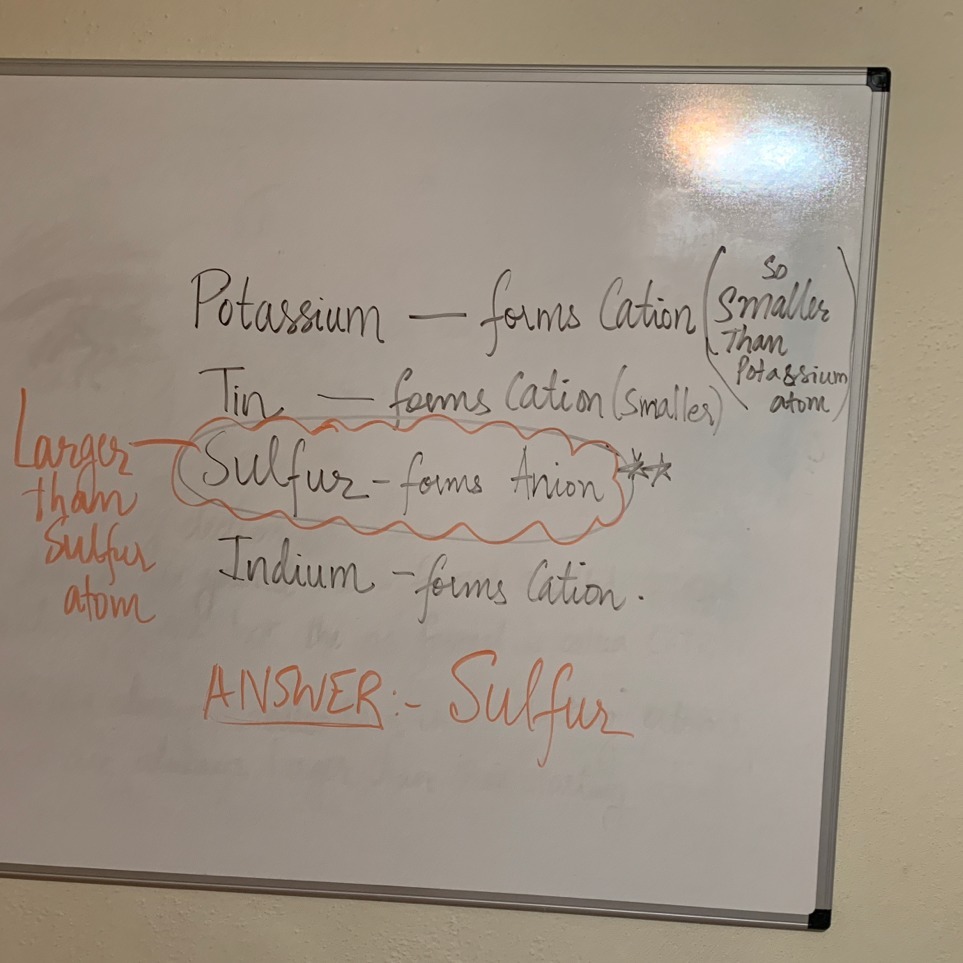 Potassium — forms Cation (So Smaller Than Potassium atom)
Tin — forms Cation (Smaller)
Sulfur - forms Anion **
Larger than Sulfur atom
Indium - forms Cation.
ANSWER:- Sulfur